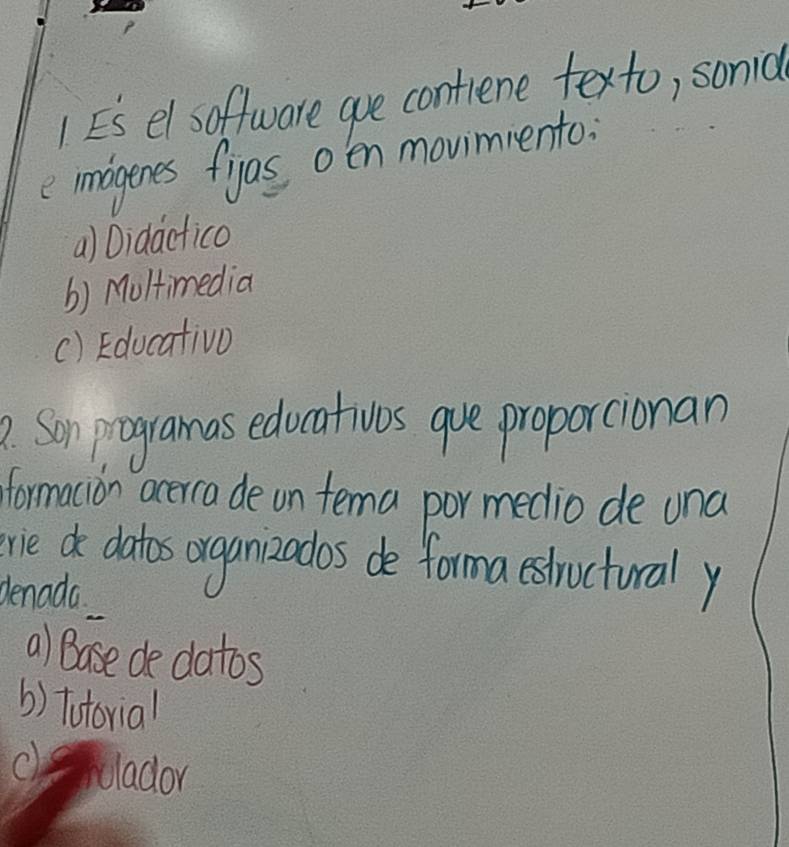 1. Es el software que contiene texto, sonid
e imágenes fijas o en movimiento:
a) Didáctico
b) Multimedia
c) Educativo
2. Son programas educativos que proporcionan
formación acerca de un tema por medio de una
erie de datos organizados de forma estructural y
denada.
a) Base de datos
b) Tutorial
c)